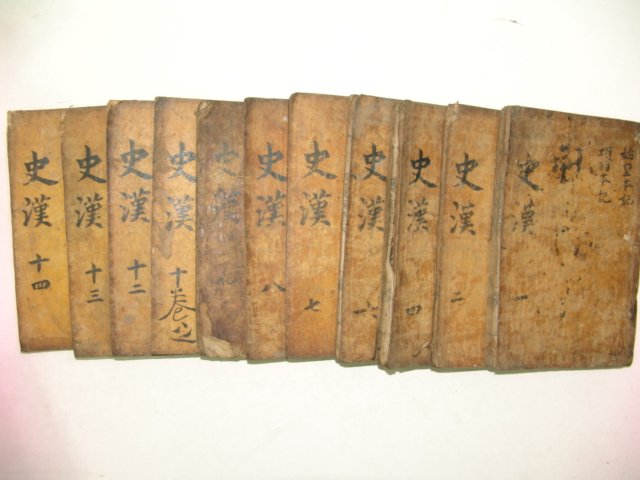 史漢 一
始皇本記
項羽本記
史漢 二
史漢 四
史漢 六
史漢 七
史漢 八
史漢 九
史漢 十
卷之
史漢 十二
史漢 十三
史漢 十四